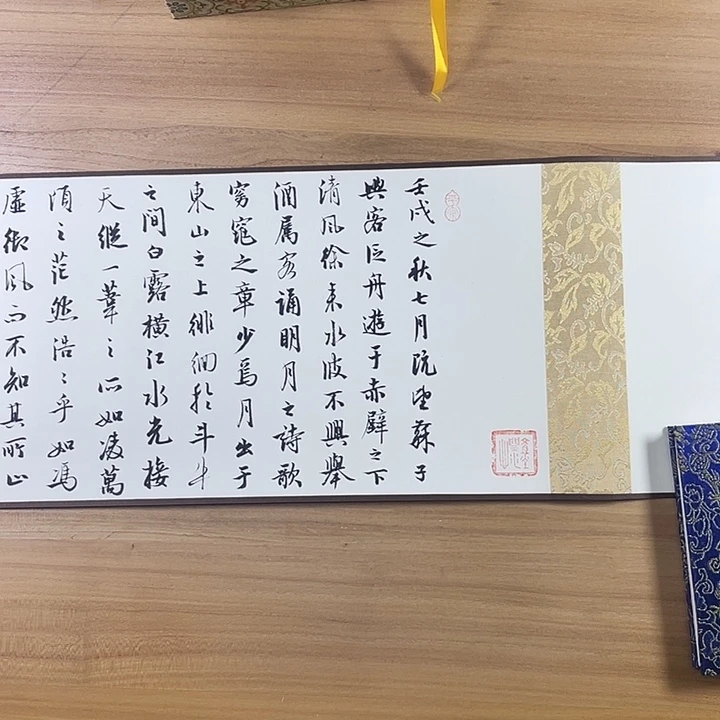 壬戌之秋七月既望蘇子
與客泛舟遊于赤壁之下
清風徐来水波不興舉
酒属客誦明月之詩歌
窈窕之章少焉月出于
東山之上徘徊於斗牛
之間白露横江水光接
天縱一葦之所如凌萬
頃之茫然浩〻乎如馮
虚御風而不知其所止